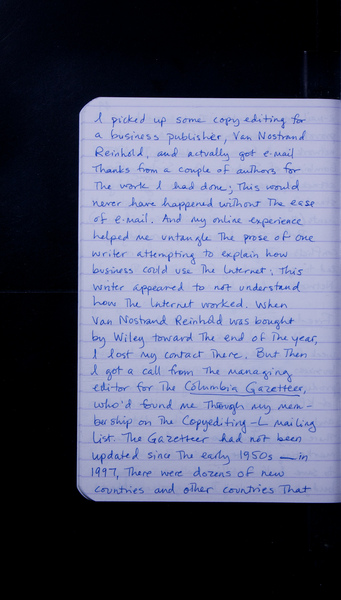 I picked up some copyediting for
a business publisher, Van Nostrand
Reinhold, and actually got e-mail
Thanks from a couple of authors for
The work I had done; This would
never have happened without The ease
of e-mail. And my online experience
helped me untangle The prose of one
writer attempting to explain how
business could use The Internet; This
writer appeared to not understand
how The Internet worked. When
Van Nostrand Reinhold was bought
by Wiley toward The end of The year,
I lost my contact There. But Then
I got a call from The managing
editor for The Columbia Gazetteer,
who'd found me Through my mem-
bership on The Copyediting-L mailing
list. The Gazetteer had not been
updated since The early 1950s — in
1997, There were dozens of new
countries and other countries That